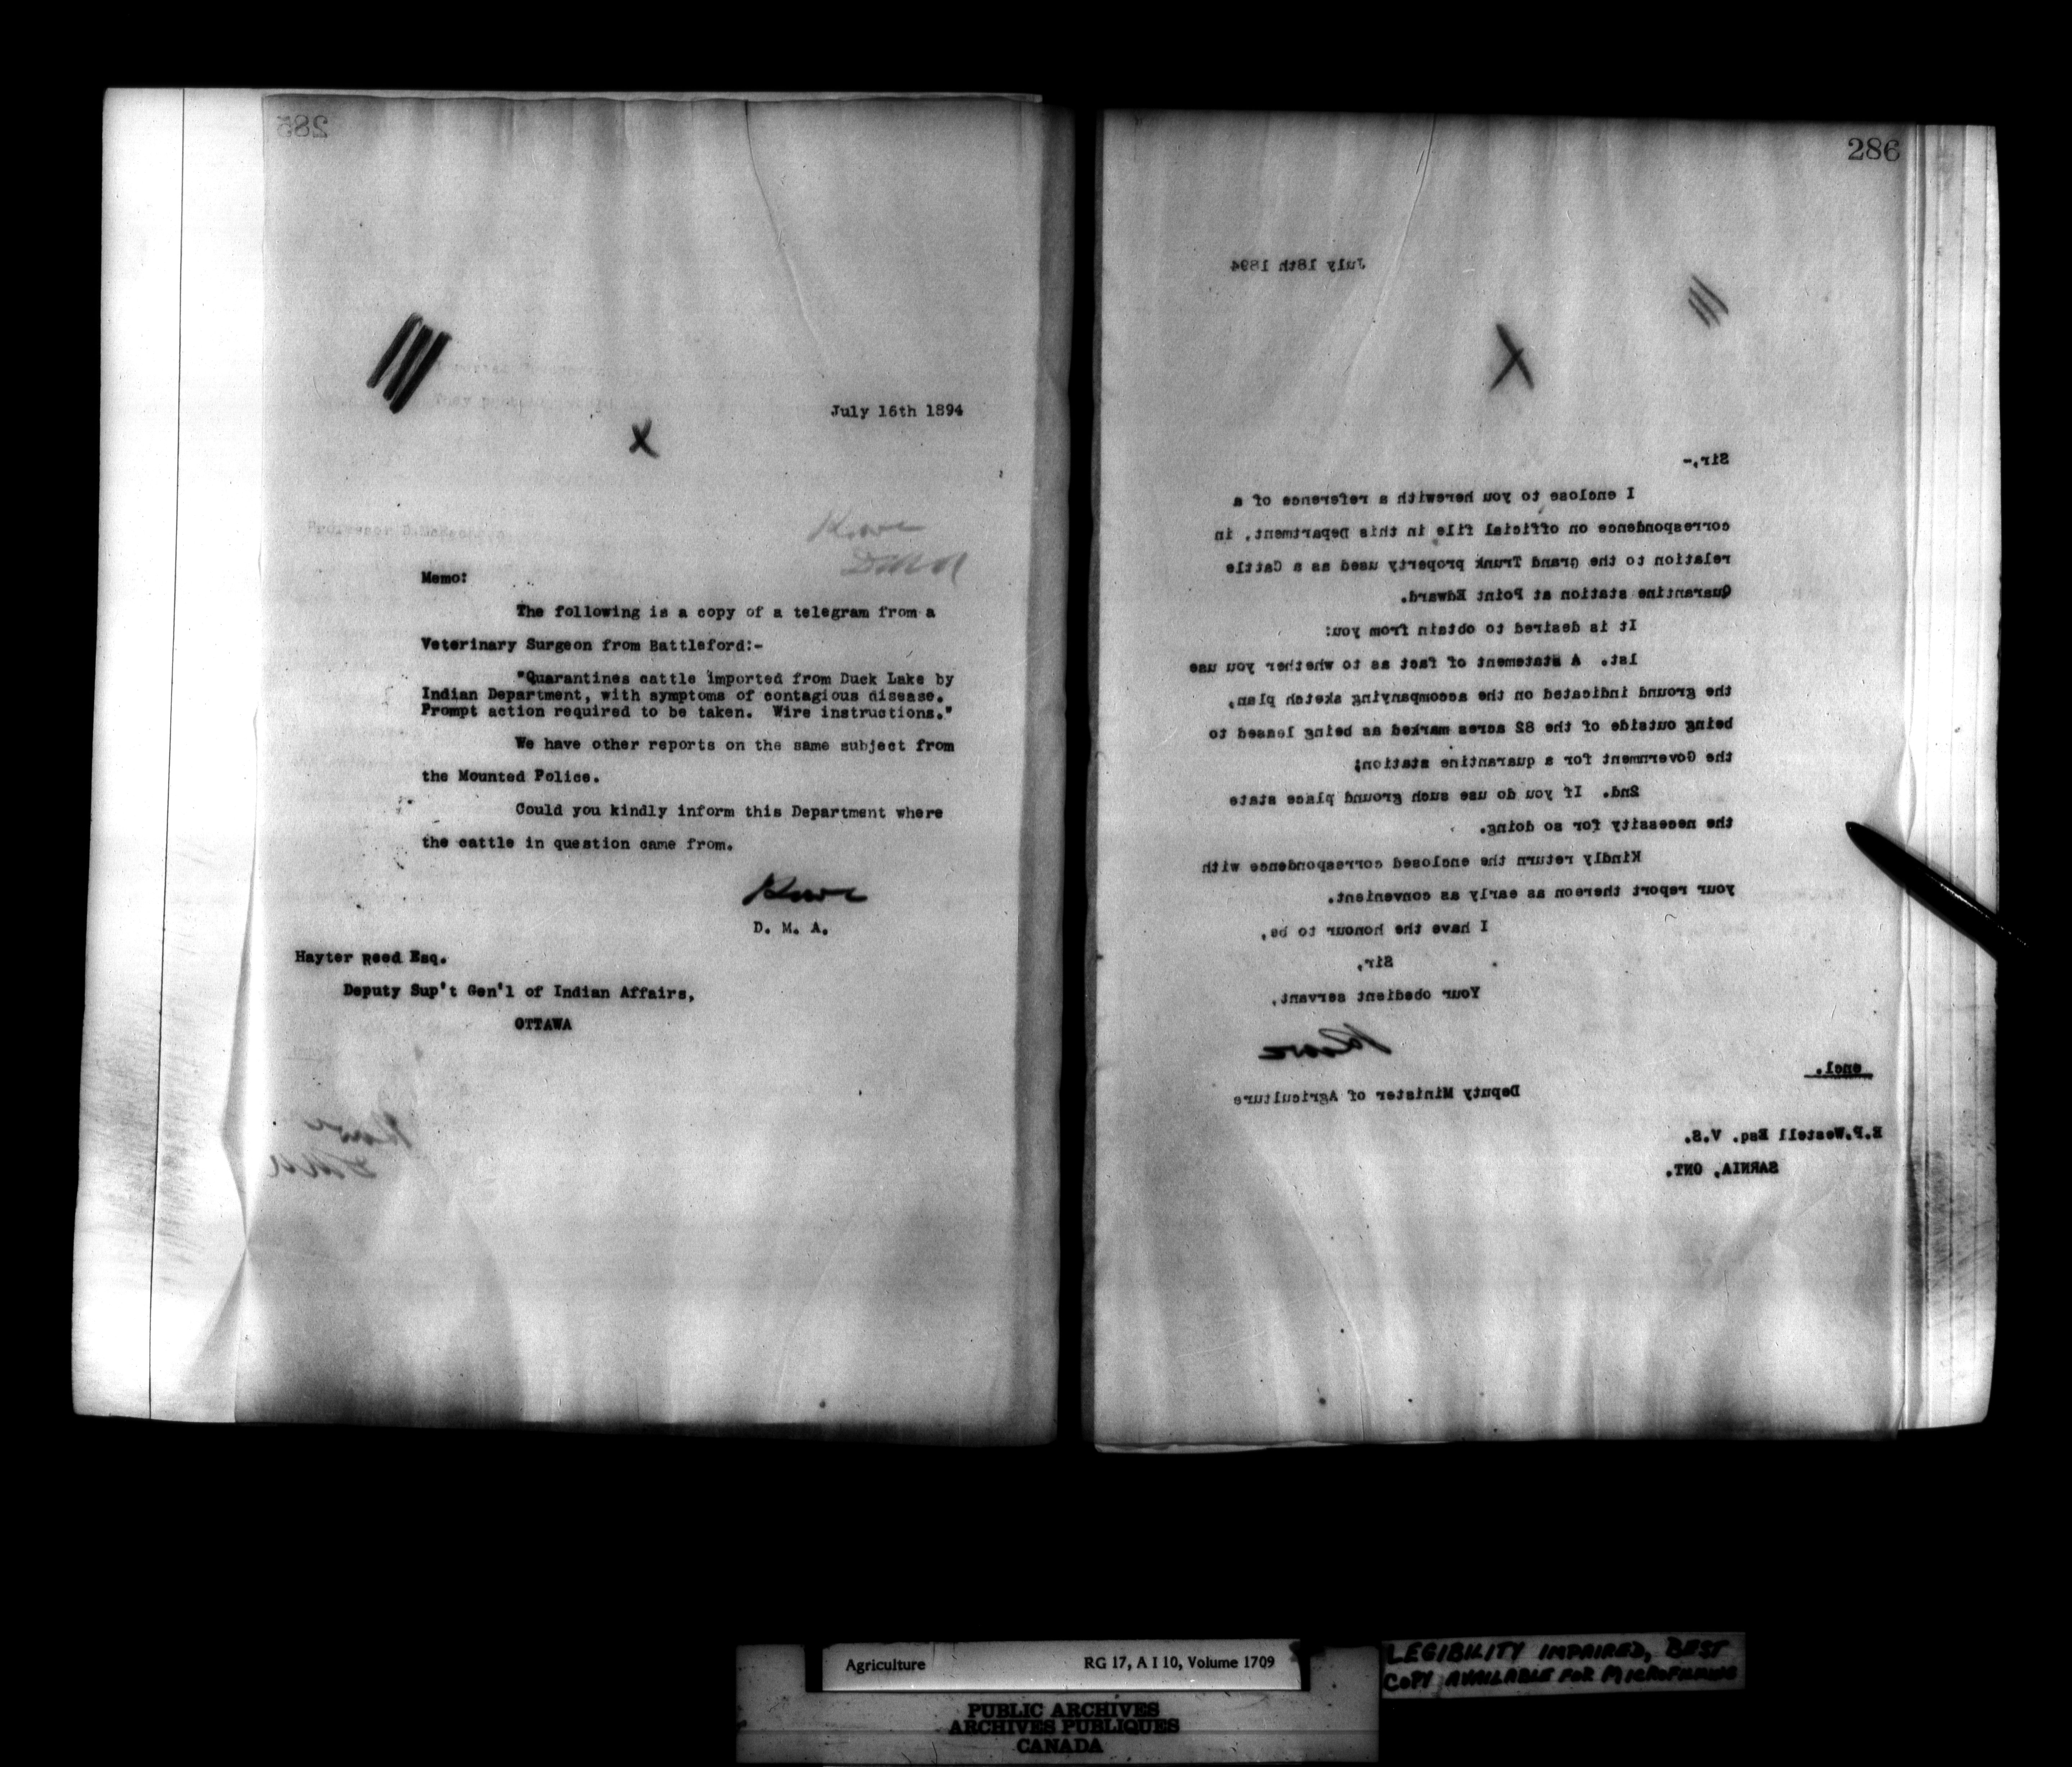 285
July 16th 1894
Memo:
The following is a copy of a telegram from a
Veterinary Surgeon from Battleford:-
"Quarantines cattle imported from Duck Lake by
Indian Department, with symptoms of contagious disease.
Prompt action required to be taken. Wire instructions."
We have other reports on the same subject from
the Mounted Police.
Could you kindly inform this Department where
the cattle in question came from.
D. M. A.
Hayter Reed Esq.
Deputy Sup't Gen'l of Indian Affairs,
OTTAWA
286
July 18th 1894
Sir,-
I enclose to you herewith a reference of a
correspondence on official file in this Department, in
relation to the Grand Trunk property used as a Cattle
Quarantine station at Point Edward.
It is desired to obtain from you:
1st. A statement of fact as to whether you use
the ground indicated on the accompanying sketch plan,
being outside of the 82 acres marked as being leased to
the Government for a quarantine station;
2nd. If you do use such ground place state
the necessity for so doing.
Kindly return the enclosed correspondence with
your report thereon as early as convenient.
I have the honour to be,
Sir,
Your obedient servant,
Deputy Minister of Agriculture
encl.
E.P.Westell Esq. V.S.
SARNIA, ONT.
Agriculture RG 17, A I 10, Volume 1709
PUBLIC ARCHIVES
ARCHIVES PUBLIQUES
CANADA
LEGIBILITY IMPAIRED, BEST
COPY AVAILABLE FOR MICROFILMING